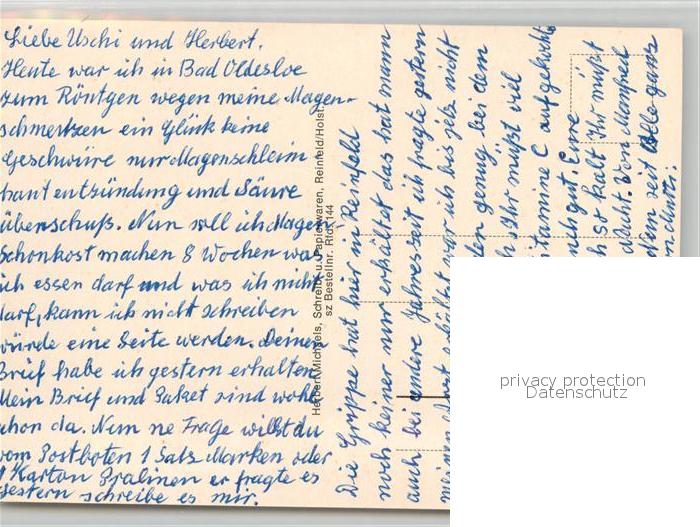 Liebe Uschi und Herbert.
Heute war ich in Bad Oldesloe
zum Röntgen wegen meine Magen-
schmertzen ein Glück keine
Geschwüre nur Magenschleim
haut entzündung und Säure
überschuß. Nun soll ich Magen-
schonkost machen 8 Wochen was
ich essen darf und was ich nicht
darf, kann ich nicht schreiben
würde eine Seite werden. Deinen
Brief habe ich gestern erhalten
Mein Brief und Paket sind wohl
schon da. Nun ne Frage willst du
vom Postboten 1 Satz Marken oder
1 Karton Pralinen er fragte es
gestern schreibe es mir.
Herbert Michaels, Schreib- u. Papierwaren, Reinfeld/Holst.
sz Bestellnr. Rfd. 144
Die Grippe hat hier in Reinfeld
noch keiner nur erhältet das hat man
auch bei andere Jahreszeit ich fragte gestern
war ich bis jetz nicht
den genug bei dem
Ihr müßt viel
tamine C
Eure
so kalt Ihr müßt
Von Manfred
Nun seid Alle ganz
privacy protection
Datenschutz